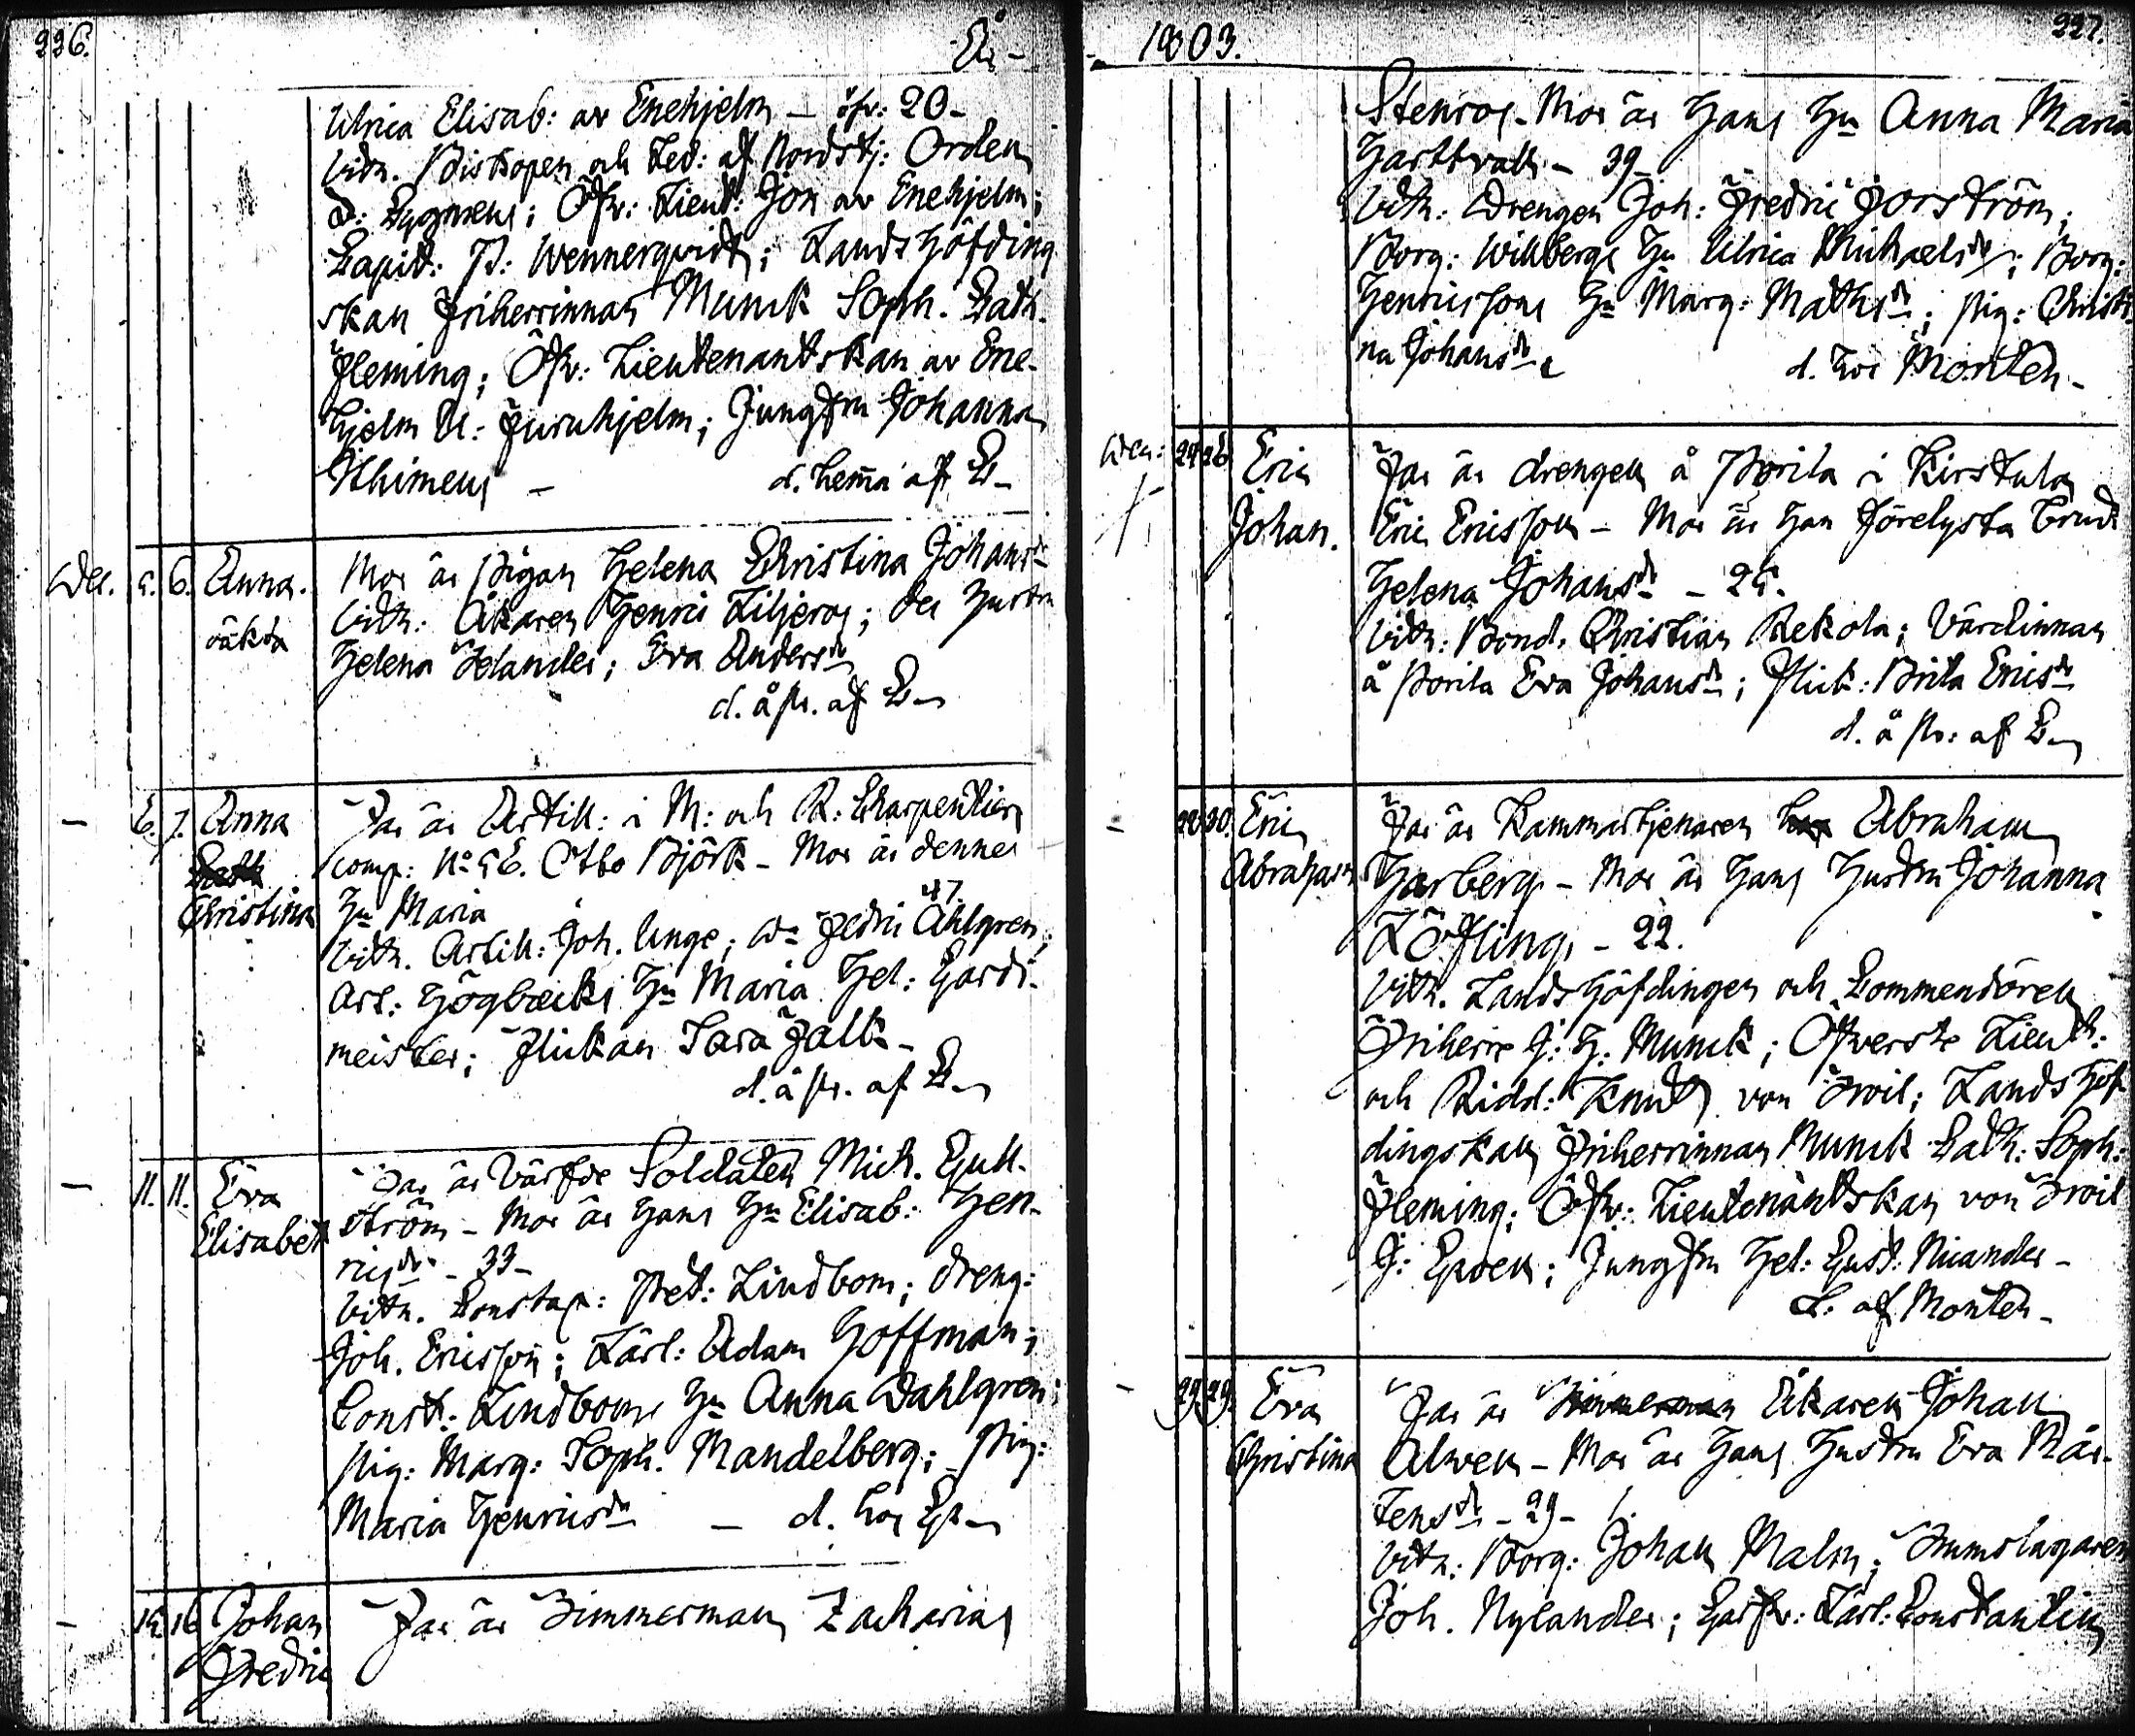 226.
År
Ulrica Elisab: av Enehjelm - öfv: 20-
Vitn. Biskopen och Led: af Nordstj: Orden
Cygnaeus; Öfv: Lieut: Jon av Enehjelm;
Capit: B: Wennerqvist; Landshöfding
skan Friherrinnan Munck Soph. Cath.
Fleming; Öfv: Lieutenantskan av Ene-
hjelm U: Furuhjelm; Jungfru Johanna
d. hema af C-
Dec. 5. 6. Anna. oäkta
Mor är Pigan Helena Christina Johansdr
Vitn: Åkaren Henric Liljeros; des Hustru
Helena Selander; Eva Andersdr
d. å Pr. af C-
- 6. 7. Anna Cath Christina
Far är Artill: i M: och R: Charpentiers
comp: No 56. Otto Björk - Mor är dennes
Hu Maria 47.
Vitn. Artill: Joh. Unge; Do Fedric Ahlgren;
Art: Högbecks Hu Maria Hel: Gardi-
meister; Flickan Sara Falk-
d. å Pr. af C-
- 11. 11. Eva Elisabet
Far är Värfde Soldaten Mich. Gull-
ström - Mor är Hans Hu Elisab: Hen-
ricsdr - 33-
Vitn. Constap: Pet: Lindbom; Dreng:
Joh. Ericsson; Lärl: Adam Hoffman;
Const: Lindboms Hu Anna Dahlgren;
Pig: Marg: Soph. Mandelberg; Pig:
Maria Henricsdr - d. hos
- 15. 16 Johan Fredric
Far är Timmerman Zacharias
1803.
227.
Stenros - Mor är Hans Hu Anna Maria
Harttvall - 39-
Vitn: Drengen Joh: Fredric Forström;
Borg: Willbergs Hu Ulrica Michaelsdr; Borg:
Henricssons Hu Marg: Mathsdr; Pig: Christi-
na Johansdr d. hos Monten-
Dec: 24 26 Eric Johan.
Far är drengen å Porila i Kirstula
Eric Ericsson - Mor är Han Förelysta Brud
Helena Johansdr - 25.
Vitn: Bond. Christian Rekola; Värdinnan
å Porila Eva Johansdr; Flick: Brita Ericsdr
d. å Pr: af C-
- 28 30. Eric Abraham
Far är Kammartjenaren Abraham
Harberg - Mor är Hans Hustru Johanna
Löfling - 22.
Vitn. Landshöfdingen och Commendören
Friherre J: H: Munck; Öfverste Lieut:
och Ridd: Knut von Troil; Landshöf-
dingskan Friherrinnan Munck Cath: Soph:
Fleming; Öfv: Lieutenantskan von Troil
Jungfru Hel: Gust: Nicander-
d. af Monten-
- 29 29. Eva Christina
Far är Timmerman Åkaren Johan
Alwen - Mor är Hans Hustru Eva Mår-
tensdr - 29-
Vitn: Borg: Johan Malm; Trumslagaren
Joh. Nylander; Garfv: Lärl: Constantin